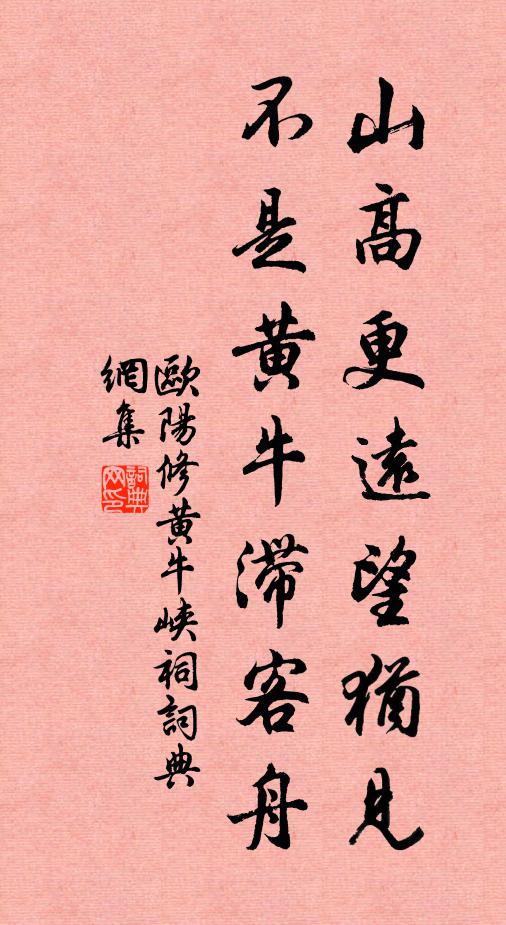 山高更遠望猶見
不是黃牛滯客舟
歐陽修黃牛峽祠詞典
網集
詞典網印